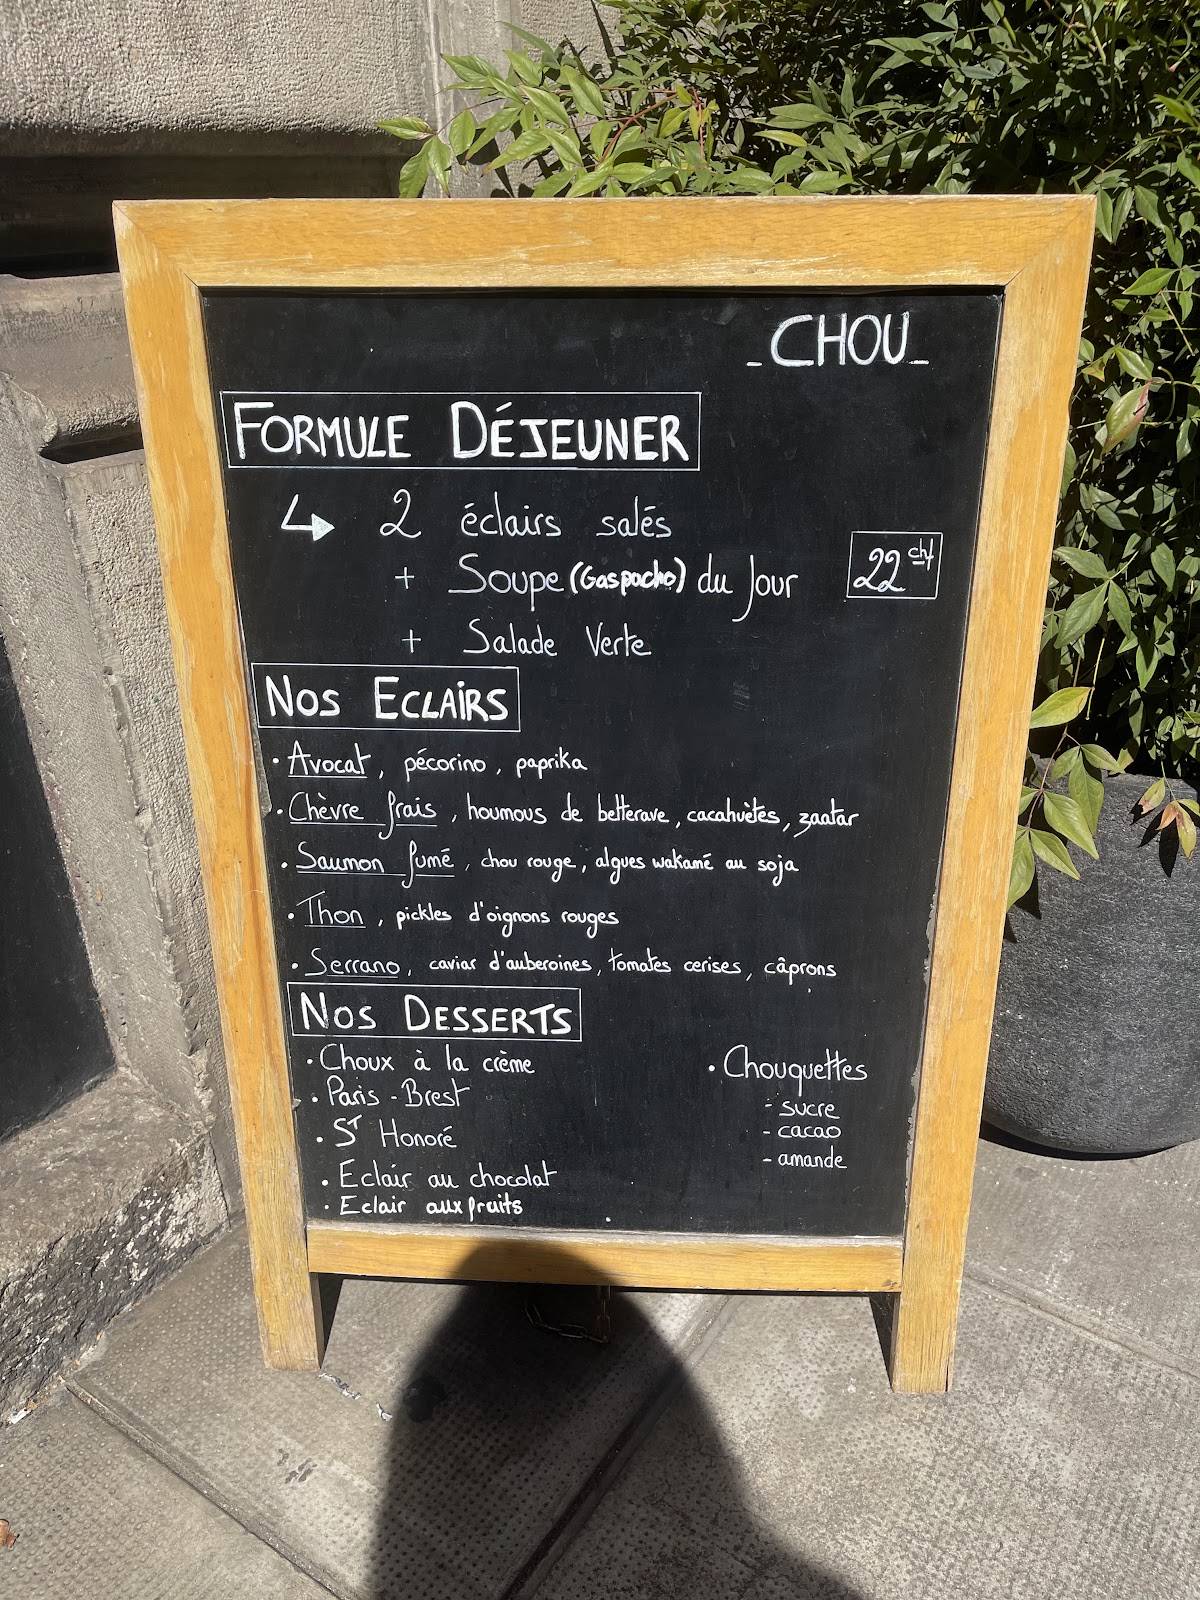 _CHOU_
FORMULE DÉJEUNER
2 éclairs salés
+ Soupe (Gaspacho) du Jour
22 chf
+ Salade Verte
NOS ECLAIRS
• Avocat, pécorino, paprika
• Chèvre frais, houmous de betterave, cacahuètes, zaatar
• Saumon fumé, chou rouge, algues wakamé au soja
• Thon, pickles d'oignons rouges
• Serrano, caviar d'auberoines, tomates cerises, câprons
NOS DESSERTS
• Choux à la crème
• Paris - Brest
• St Honoré
• Eclair au chocolat
• Eclair aux fruits
• Chouquettes
- sucre
- cacao
- amande